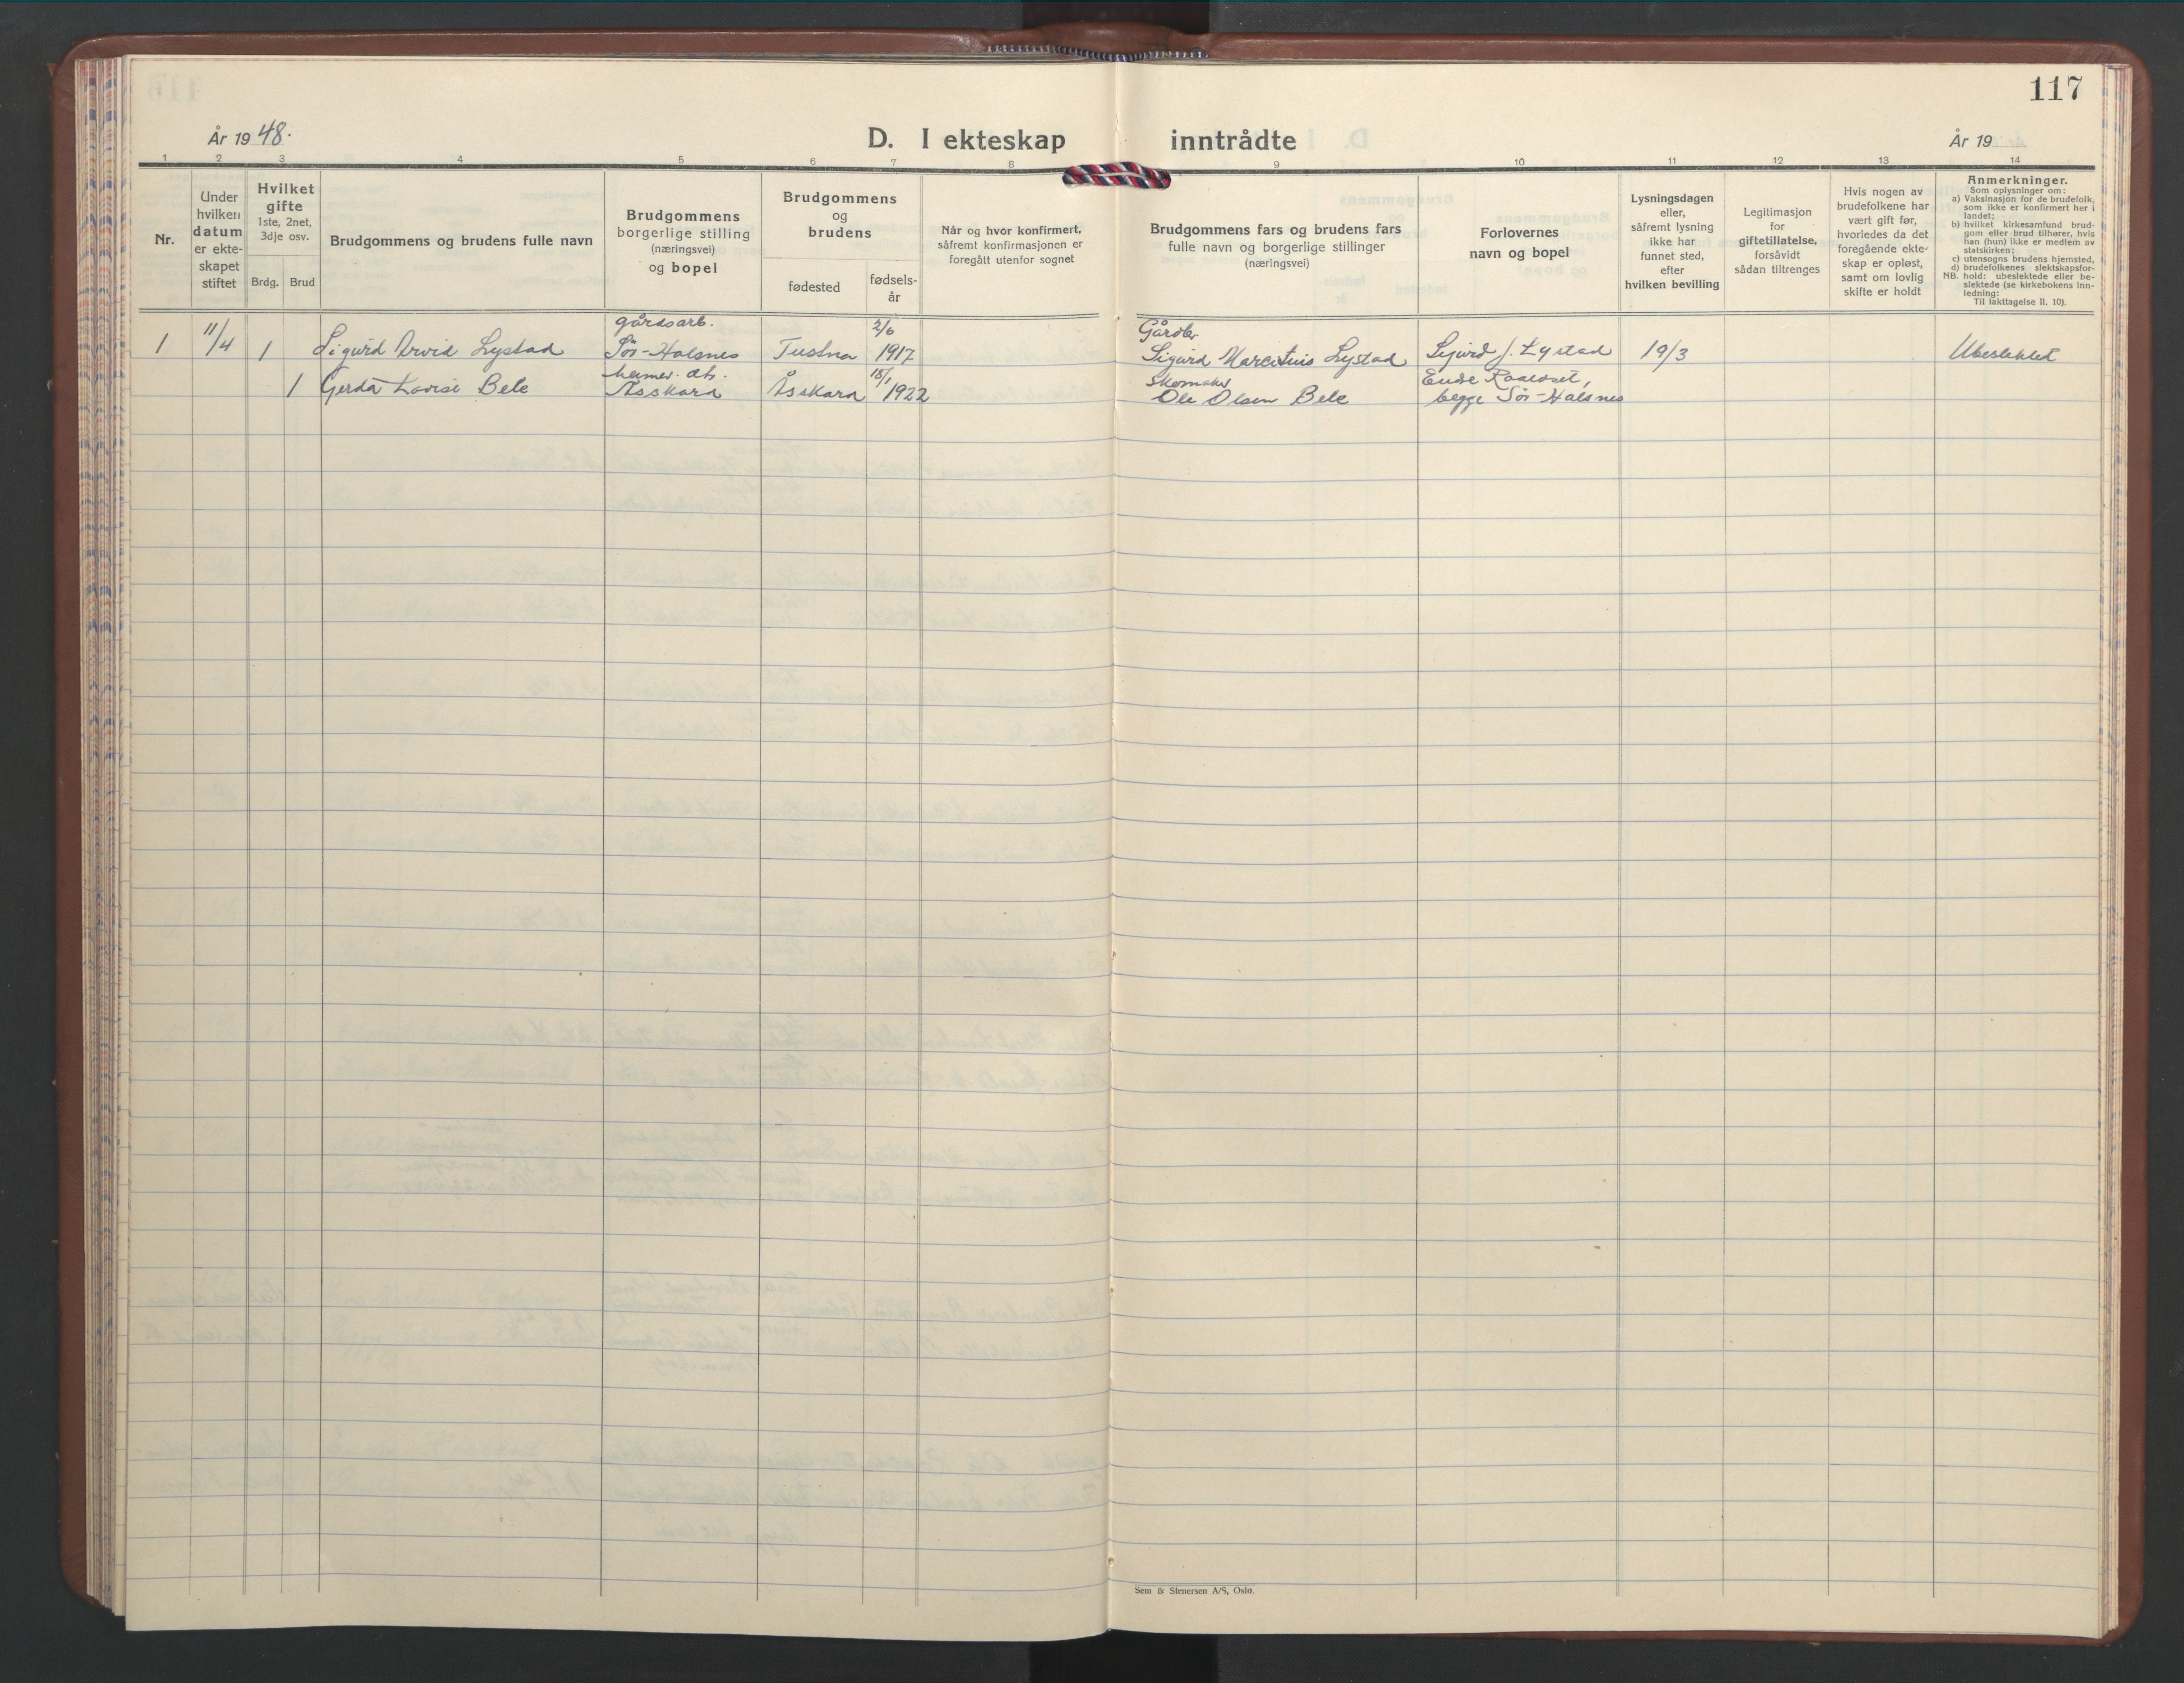 117
År 1948.
D. I ekteskap inntrådte
År 19
1 2 3 4 5 6 7 8 9 10 11 12 13 14
Nr.
Under
hvilken
datum
er ekte-
skapet
stiftet
Hvilket
gifte
1ste, 2net,
3dje osv.
Brdg. Brud
Brudgommens og brudens fulle navn
Brudgommens
borgerlige stilling
(næringsvei)
og bopel
Brudgommens
og
brudens
fødested
fødsels-
år
Når og hvor konfirmert,
såfremt konfirmasjonen er
foregått utenfor sognet
Brudgommens fars og brudens fars
fulle navn og borgerlige stillinger
(næringsvei)
Forlovernes
navn og bopel
Lysningsdagen
eller,
såfremt lysning
ikke har
funnet sted,
efter
hvilken bevilling
Legitimasjon
for
giftetillatelse,
forsåvidt
sådan tiltrenges
Hvis nogen av
brudefolkene har
vært gift før,
hvorledes da det
foregående ekte-
skap er opløst,
samt om lovlig
skifte er holdt
Anmerkninger.
Som oplysninger om:
a) Vaksinasjon for de brudefolk,
som ikke er konfirmert her i
landet;
b) hvilket kirkesamfund brud-
gom eller brud tilhører, hvis
han (hun) ikke er medlem av
statskirken;
c) utensogns brudens hjemsted,
d) brudefolkenes slektskapsfor-
NB. hold: ubeslektede eller be-
slektede (se kirkebokens inn-
ledning:
Til iakttagelse II, 10).
gårdsarb. 2/6 Gårdbr.
1 11/4 1 Sigurd Arvid Lystad Sør-Halsnes Tustna 1917 Sigurd Marentius Lystad Sigurd J. Lystad 19/3 Ubeslektet
heimev. dtr. 15/1 Skomaker
1 Gerda Lovise Bele Åsskard Åsskard 1922 Ole Olsen Bele begge Sør-Halsnes
Sem & Stenersen A/S, Oslo.